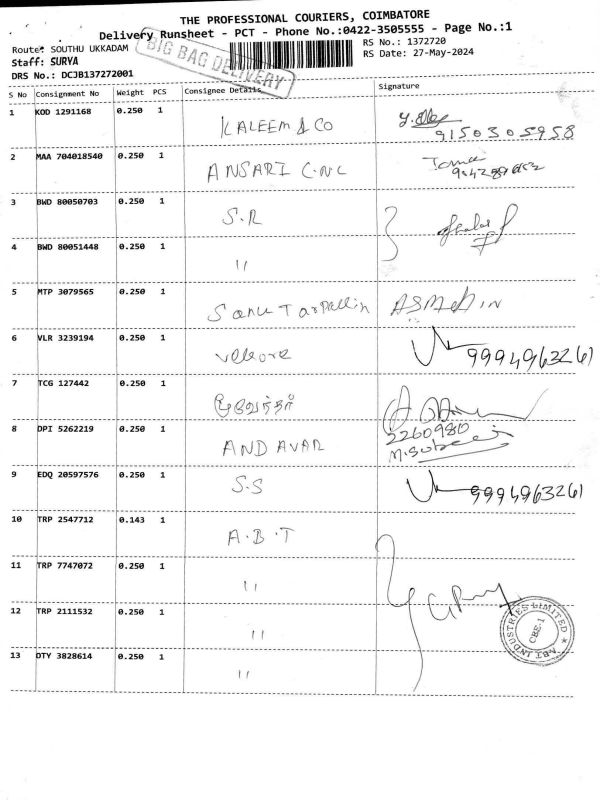 THE PROFESSIONAL COURIERS, COIMBATORE
Delivery Runsheet - PCT - Phone No.:0422-3505555 - Page No.:1
Route: SOUTHU UKKADAM
BIG BAG DELIVERY
RS No.: 1372720
Staff: SURYA
RS Date: 27-May-2024
DRS No.: DCJB137272001
S No Consignment No Weight PCS Consignee Details Signature
1 KOD 1291168 0.250 1
KALEEM & CO
9150305958
2 MAA 704018540 0.250 1
ANSARI C.N.C
3 BWD 80050703 0.250 1
S.R
4 BWD 80051448 0.250 1
"
5 MTP 3079565 0.250 1
Sonu Tarpallin
6 VLR 3239194 0.250 1
Vellore
9994963261
7 TCG 127442 0.250 1
8 DPI 5262219 0.250 1
ANDAVAR
2260980
9 EDQ 20597576 0.250 1
S.S
9994963261
10 TRP 2547712 0.143 1
A.B.T
11 TRP 7747072 0.250 1
"
12 TRP 2111532 0.250 1
"
ABT INDUSTRIES LIMITED
CBE-1
13 DTY 3828614 0.250 1
"